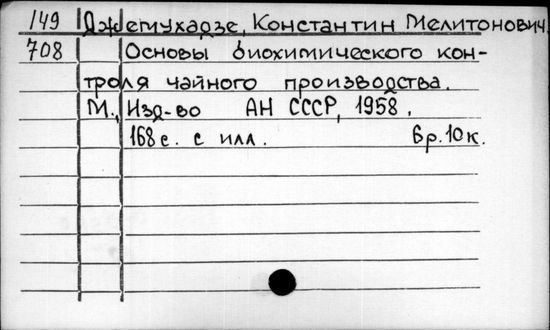 149 Джемухадзе, Константин Мелитонович.
708 Основы биохимического кон-
троля чайного производства.
М., Изд-во АН СССР, 1958.
168 с. с илл. 6 р. 10 к.